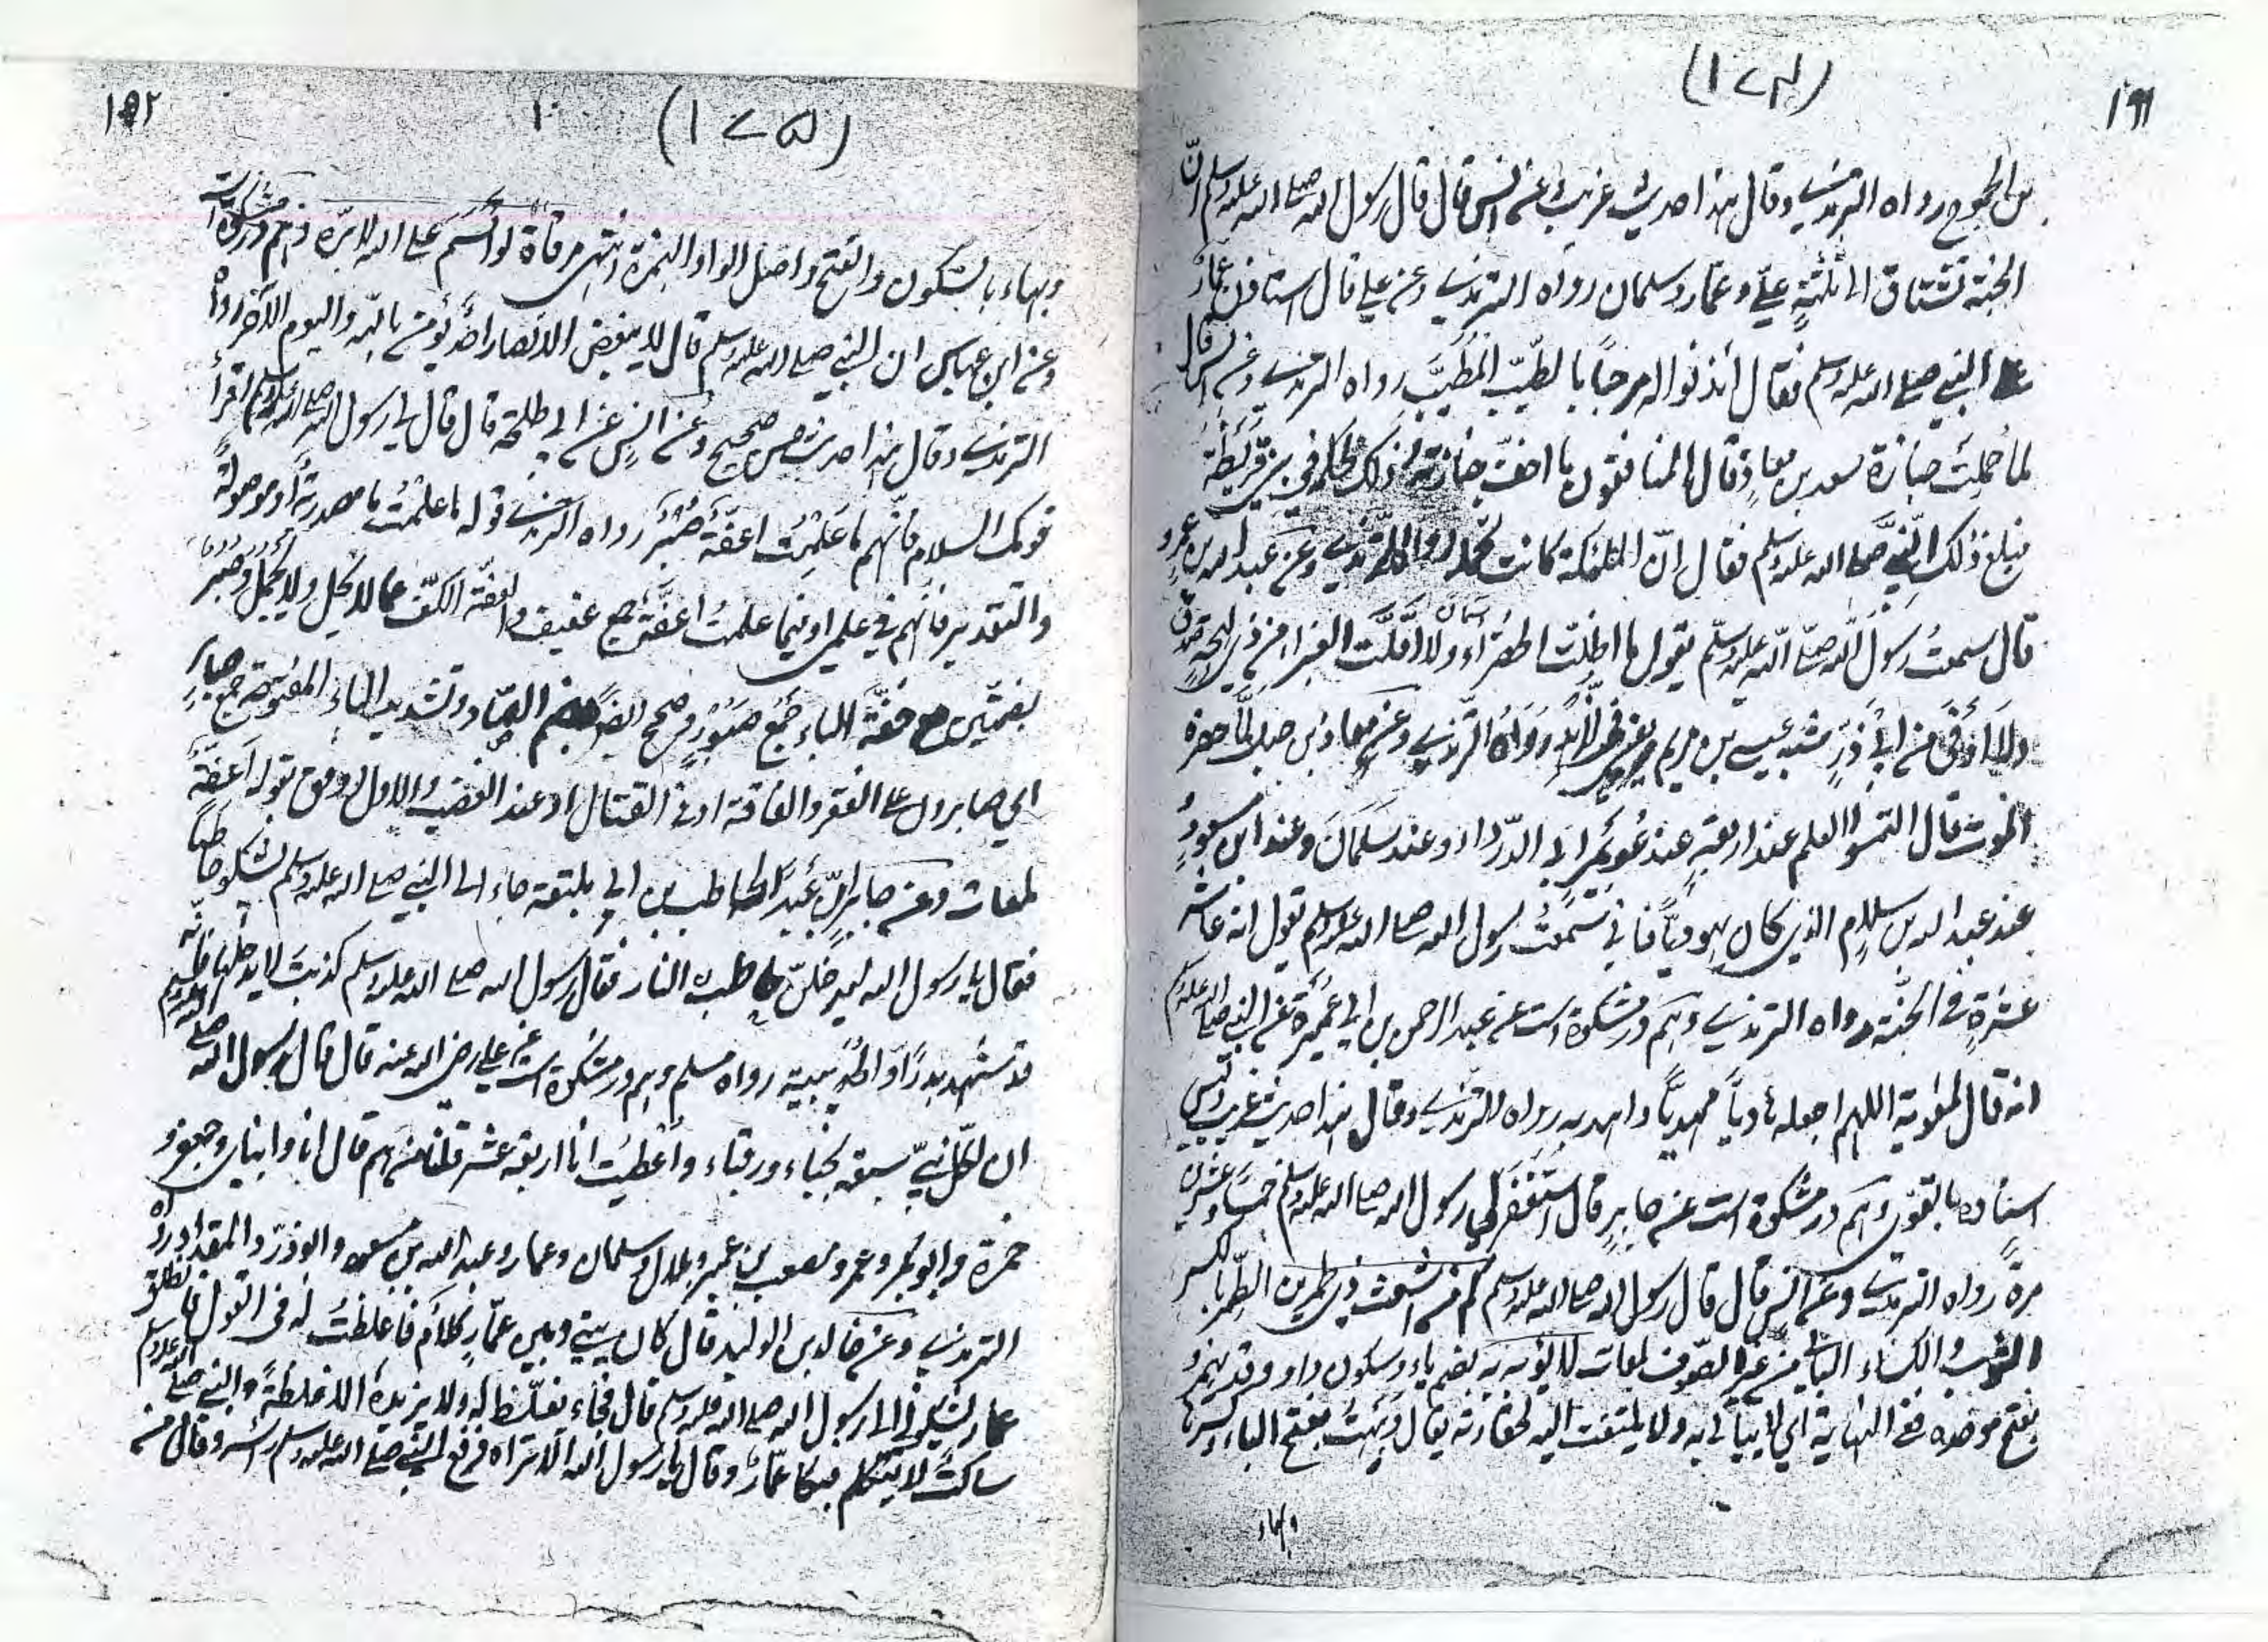 (۱۷۴)
۱۹۱
من الجموح رواه الترمذی وقال هذا حدیث غریب وعن انس قال قال رسول الله صلی الله علیه وسلم انّ
الجنة تشتاق الی ثلثةٍ علیّ وعمّار وسلمان رواه الترمذی وعن علی قال استاذن عمارٌ
علی النبی صلی الله علیه وسلم فقال أئذنوا له مرحباً بالطیّب المُطیَّب رواه الترمذی وعن انس قال
لما حُمِلَت جنازة سعد بن معاذٍ قال المنافقون ما اخفّ جنازته لذلک لحکمه فی بنی قُرَیظَة
فبلغ ذلک النّبیَّ صلی الله علیه وسلم فقال اِنّ الملئکة کانت تحمله رواه الترمذی وعن عبد الله بن عمرو
قال سمعتُ رَسُولَ الله صلّی الله علیه وسلّم یقول ما اظلّت الخضراءُ ولا اَقلَّت الغبراء من ذی لهجةٍ اَصدق
ولَا اَوْفیٰ من ابی ذَرٍّ شبه عیسی بن مریم یعنی فی الزّهد رَوَاهُ التّرمذی وعن معاذ بن جبل لمّا حضره
الموت قال التمسوا العلم عند اربعةٍ عند عُوَیْمَر ابی الدّرداء وعند سَلمَانَ وعند ابن مسعودٍ
عند عبد الله بن سلامٍ الذی کان یهودیّاً فانی سَمعتُ رسول الله صلی الله علیه وسلم یقول انه عاشر
عشرةٍ فی الجنّة رواه الترمذی وهم در مشکوة است عن عبد الرحمن بن ابی عُمَیْرَة عن النبی صلی الله علیه وسلم
انه قال لمعویة اللهم اجعله هادیاً مَهدیاً واهد به رواه الترمذی وقال هذا حدیث غریب ولیس
اسناده بالقوی وهم در مشکوة است عن جابرٍ قال استَغفَرَ لی رسول الله صلی الله علیه وسلم خمساً وعشرین
مرةً رواه الترمذی وعن انس قال قال رسول الله صلی الله علیه وسلم کم من اشعث ذی طمرین الطّمر بالکسر
الثوب والکساء البالی من غیر الصّوف لمعات لا یُؤبه به بضم یاء وسکون واو وقد یهمز و
بفتح موحده ففی النهایة ای لا یُبالی به ولا یلتفت الیه لحقارته یقال وَبَهتُ بفتح الباء وکسرها
وبهاء
(۱۷۵)
۱۰
۱۹۲
وبهاء بالسّکون والفتح واصل الواو الهمزة انتهی مرقاة لو اَقسَمَ علی الله لابَرّه وهم در مشکوة است
وعن ابن عباس ان النبی صلی الله علیه وسلم قال لا یبغض الانصار احدٌ یؤمن بالله والیوم الآخر رواه
الترمذی وقال هذا حدیث حسن صحیح وعن انسٍ عن ابی طلحة قال قال لی رسول الله صلی الله علیه وسلم اقرأ
قومک السلام فانّهم ما عَلِمْتُ اعفّةٌ صُبُرٌ رواه الترمذی قوله ما علمتُ ما مصدریةٌ او موصولةٌ
والتقدیر فانهم فی علمی او فیما علمتُ اعفّةٌ جمع عفیف والعفّة الکفّ عما لا یحل ولا یجمل وصُبُر
بضمتین مع خفّة الباء جمع صبور وصحح ایضاً بضم الصّاد وتشدید الباء المفتوحة جمع صابرٍ
ای صابرون علی الفقر والفاقة او فی القتال او عند الغضب والاول اوفق بقوله اَعفّةٌ
لمعات وعن جابر انّ عبداً لحاطب بن ابی بلتعة جاء الی النبی صلی الله علیه وسلم یشکو حاطباً
فقال یا رسول الله لیدخلنّ حاطب النار فقال رسول الله صلی الله علیه وسلم کذبتَ لا یدخلها فانّه
قد شهد بدراً والحدیبیة رواه مسلم وهم در مشکوة است عن علی رضی الله عنه قال قال رسول الله صلی الله علیه وسلم
ان لکلّ نبیّ سبعة نُجباء ورقباء واُعطیتُ انا اربعة عشر قلنا من هم قال انا وابنای وجعفر و
حمزة وابوبکر وعمر ومصعب بن عمیر وبلال وسلمان وعمار وعبد الله بن مسعود وابوذرّ والمقداد رواه
الترمذی وعن خالد بن الولید قال کان بینی وبین عمّارٍ کلامٌ فاغلظتُ له فی القول فانطلق
عمار یشکونی الی رسول الله صلی الله علیه وسلم قال فجاء یغلظ له ولا یزیده الا غلظةً والنبی صلی الله علیه وسلم
ساکتٌ لا یتکلم فبکا عمّارٌ وقال یا رسول الله الا تراه فرفع النبی صلی الله علیه وسلم رأسه وقال من